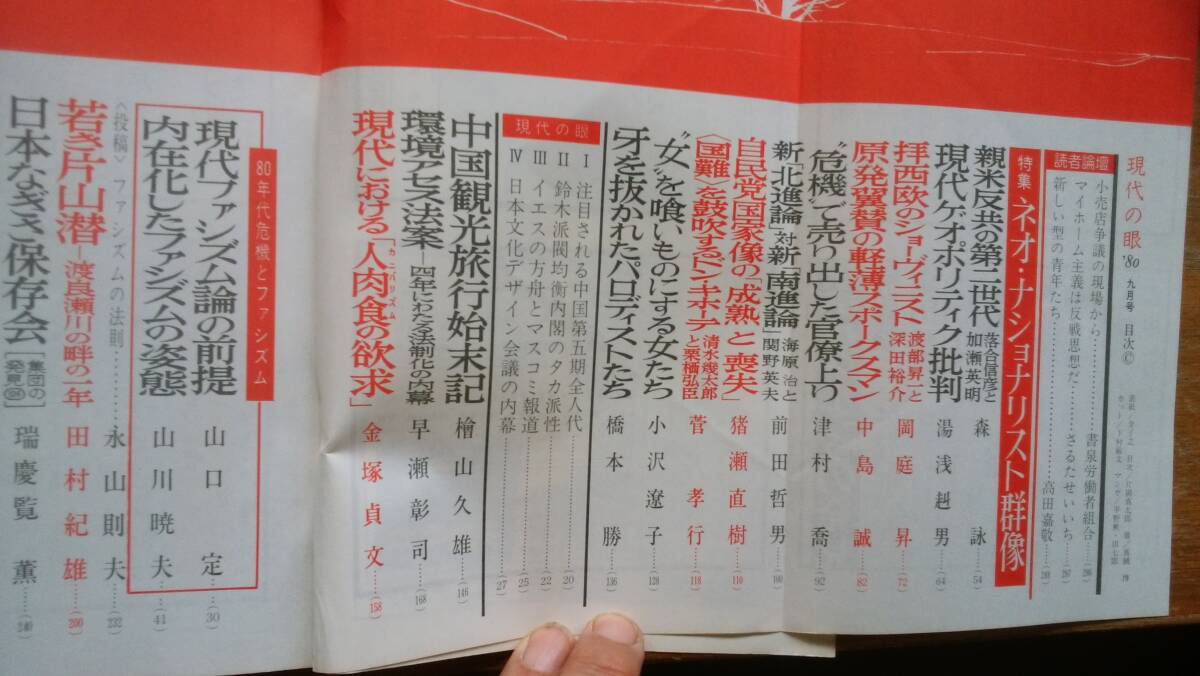 現代の眼 '80 九月号 目次©
読者論壇
小売店争議の現場から 書泉労働者組合 (286)
マイホーム主義は反戦思想だ さるたせいいち (287)
新しい型の青年たち 高田嘉敬 (288)
特集 ネオ・ナショナリスト群像
親米反共の第二世代 落合信彦と加瀬英明 森詠 (54)
現代ゲオポリティク批判 湯浅赳男 (64)
拝西欧のショーヴィニスト 渡部昇一と深田祐介 岡庭昇 (72)
原発翼賛の軽薄スポークスマン 中島誠 (82)
〝危機〟で売り出した官僚上り 津村喬 (92)
新「北進論」対新「南進論」 海原治と関野英夫 前田哲男 (100)
自民党国家像の「成熟」と「喪失」 猪瀬直樹 (110)
〈国難〉を鼓吹するドン・キホーテ 清水幾太郎と栗栖弘臣 菅孝行 (118)
〝女〟を喰いものにする女たち 小沢遼子 (128)
牙を抜かれたパロディストたち 橋本勝 (136)
現代の眼
Ⅰ 注目される中国第五期全人代 (20)
Ⅱ 鈴木派閥均衡内閣のタカ派性 (22)
Ⅲ イエスの方舟とマスコミ報道 (25)
Ⅳ 日本文化デザイン会議の内幕 (27)
中国観光旅行始末記 檜山久雄 (146)
環境アセス法案 ─四年にわたる法制化の内幕 早瀬彰司 (168)
現代における「人肉食の欲求」 カニバリズム 金塚貞文 (158)
80年代危機とファシズム
現代ファシズム論の前提 山口定 (30)
内在化したファシズムの姿態 山川暁夫 (41)
〈投稿〉ファシズムの法則 永山則夫 (232)
若き片山潜 ─渡良瀬川の畔の一年 田村紀雄 (200)
日本なぎさ保存会 [集団の発見] 瑞慶覧薫 (240)